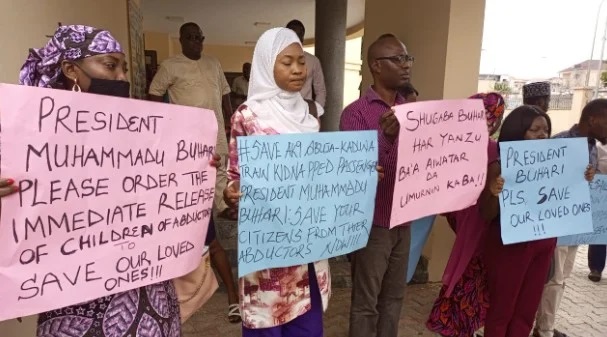 PRESIDENT
MUHAMMADU BUHARI
PLEASE ORDER THE
IMMEDIATE RELEASE
OF CHILDREN OF ABDUCTORS
TO
SAVE OUR LOVED
ONES!!!
#SAVE AK9 ABUJA-KADUNA
TRAIN KIDNAPPED PASSENGER
PRESIDENT MUHAMMADU
BUHARI: SAVE YOUR
CITIZENS FROM THEIR
ABDUCTORS NOW!!!
SHUGABA BUHARI
HAR YANZU
BA'A AIWATAR
DA
UMURNIN KA BA!!
PRESIDENT
BUHARI
PLS. SAVE
OUR LOVED ONES
!!!